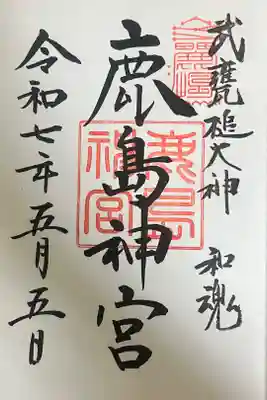 武甕槌大神 和魂
鹿島神宮
鹿島神宮
令和七年五月五日